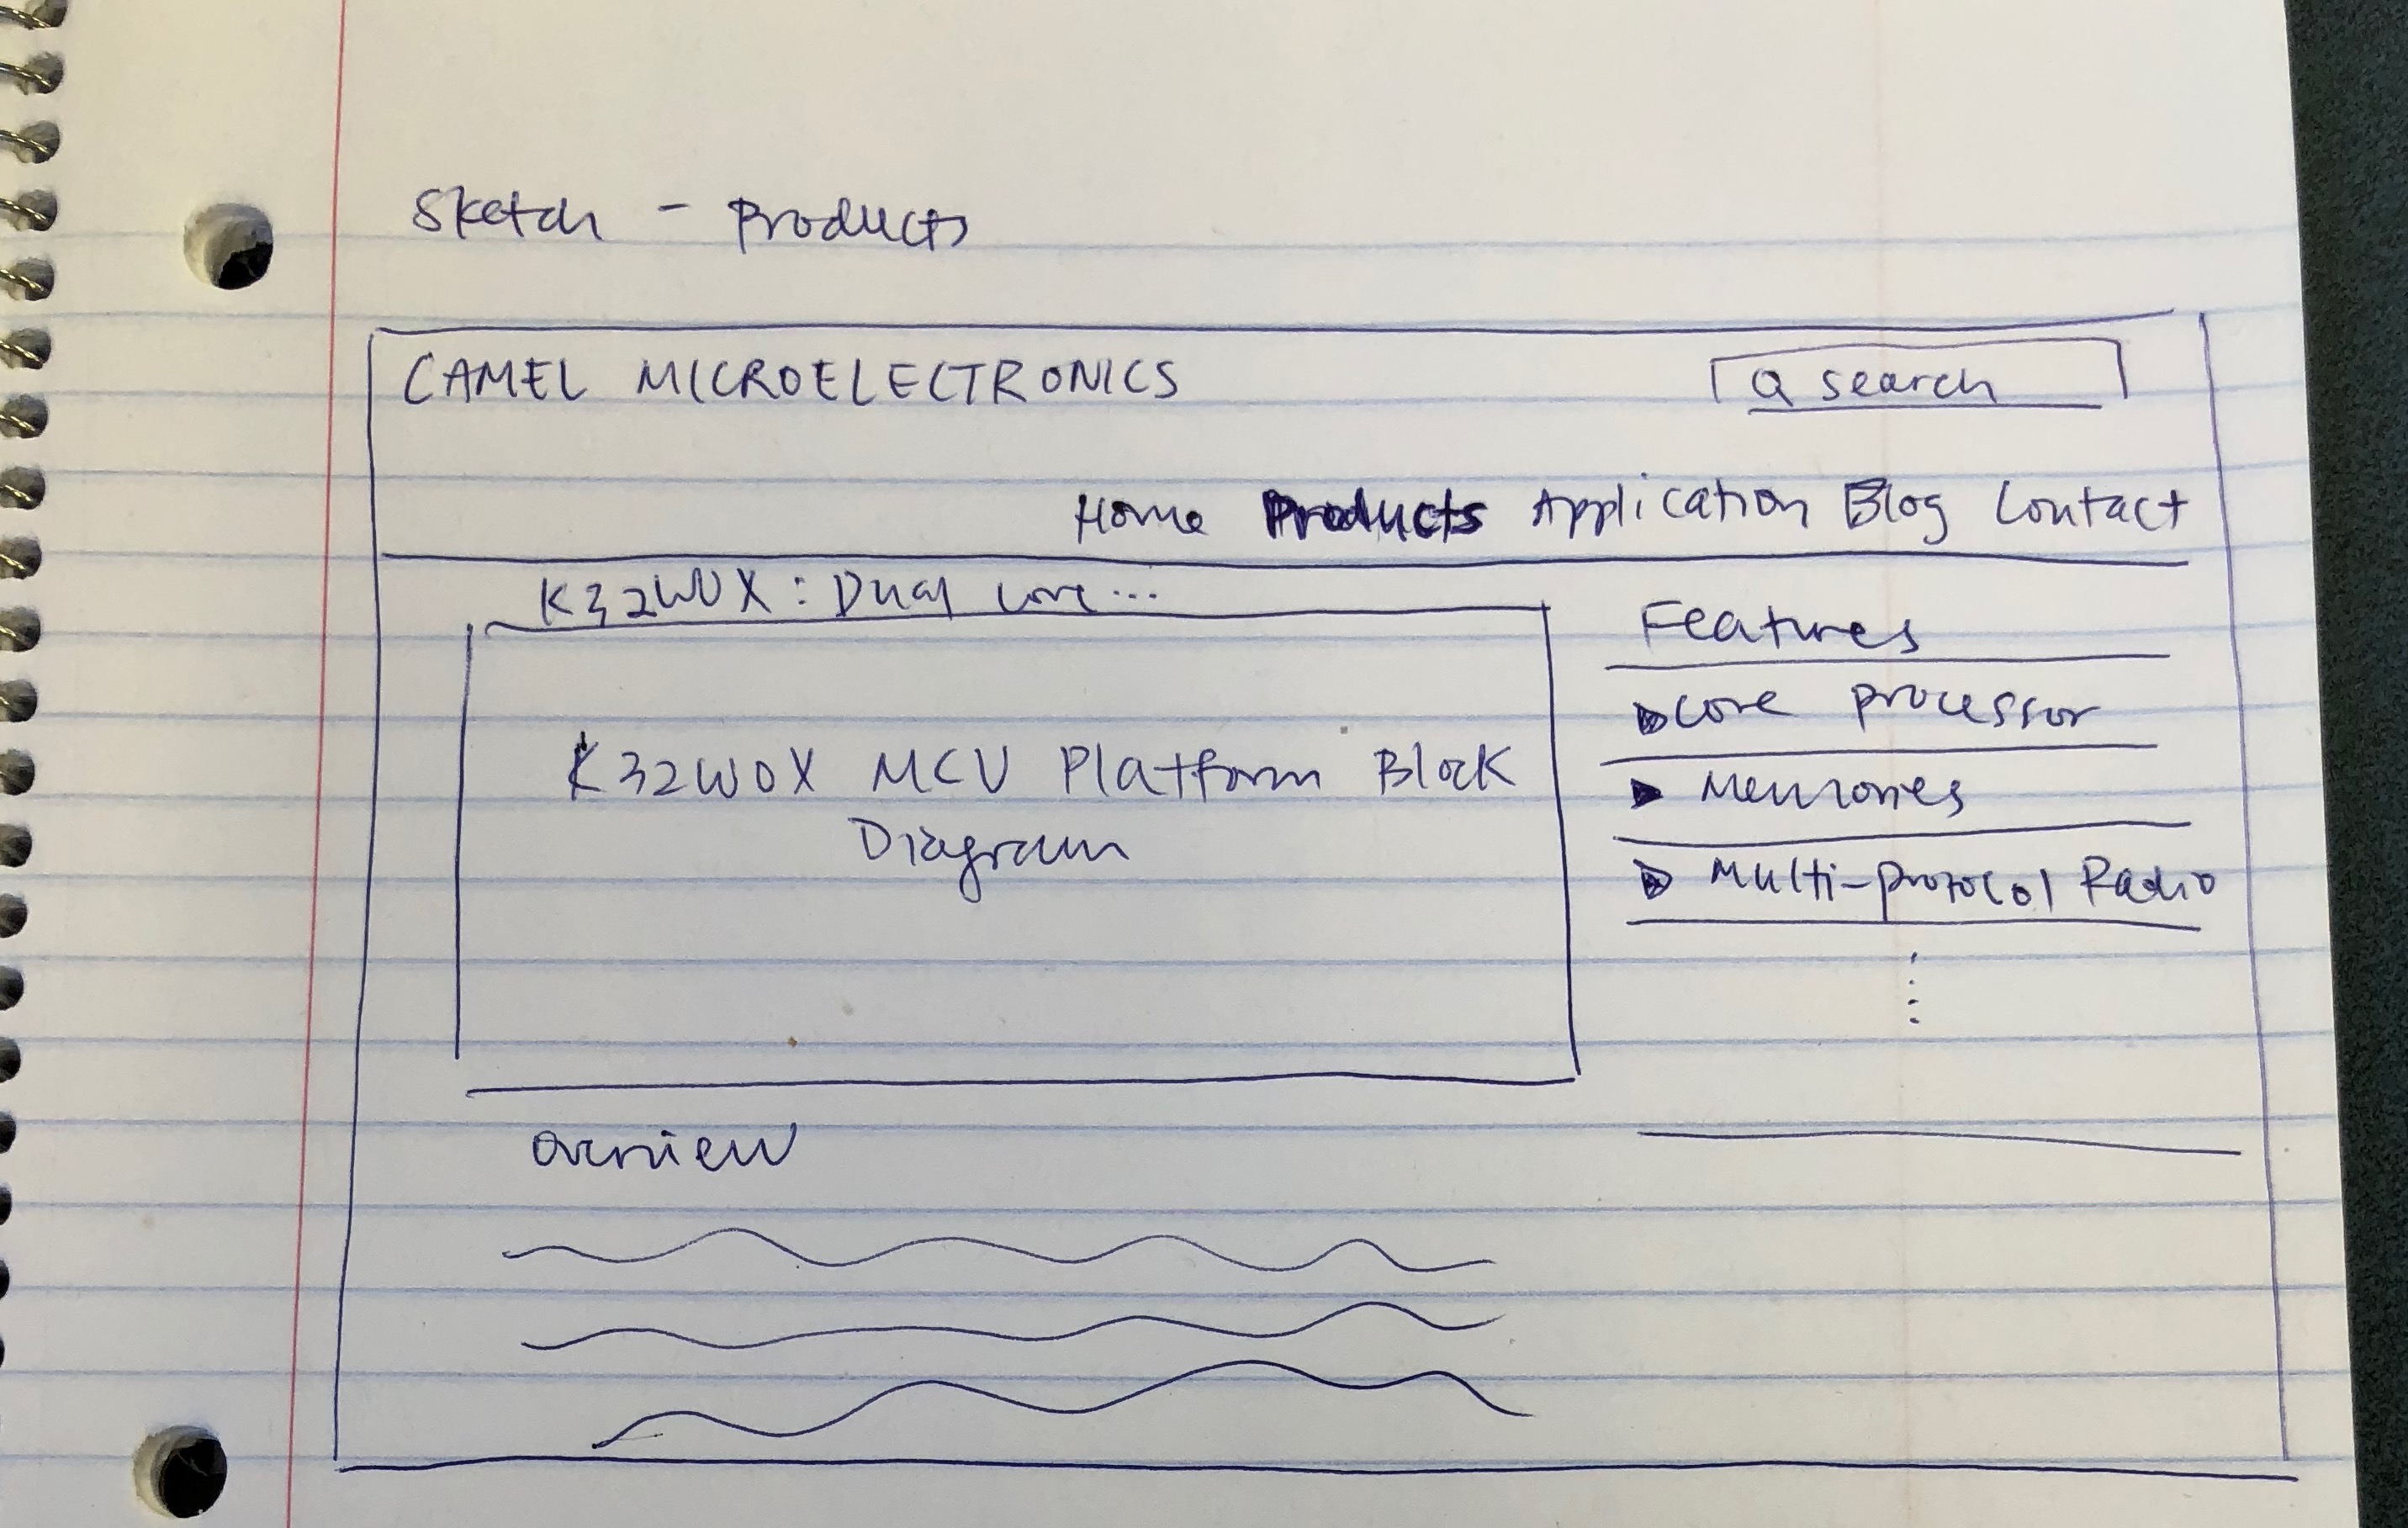 Sketch - Products
CAMEL MICROELECTRONICS
Q search
Home Products Application Blog Contact
K32W0X : Dual core...
K32W0X MCU Platform Block
Diagram
Features
core processor
Memories
Multi-protocol Radio
Overview